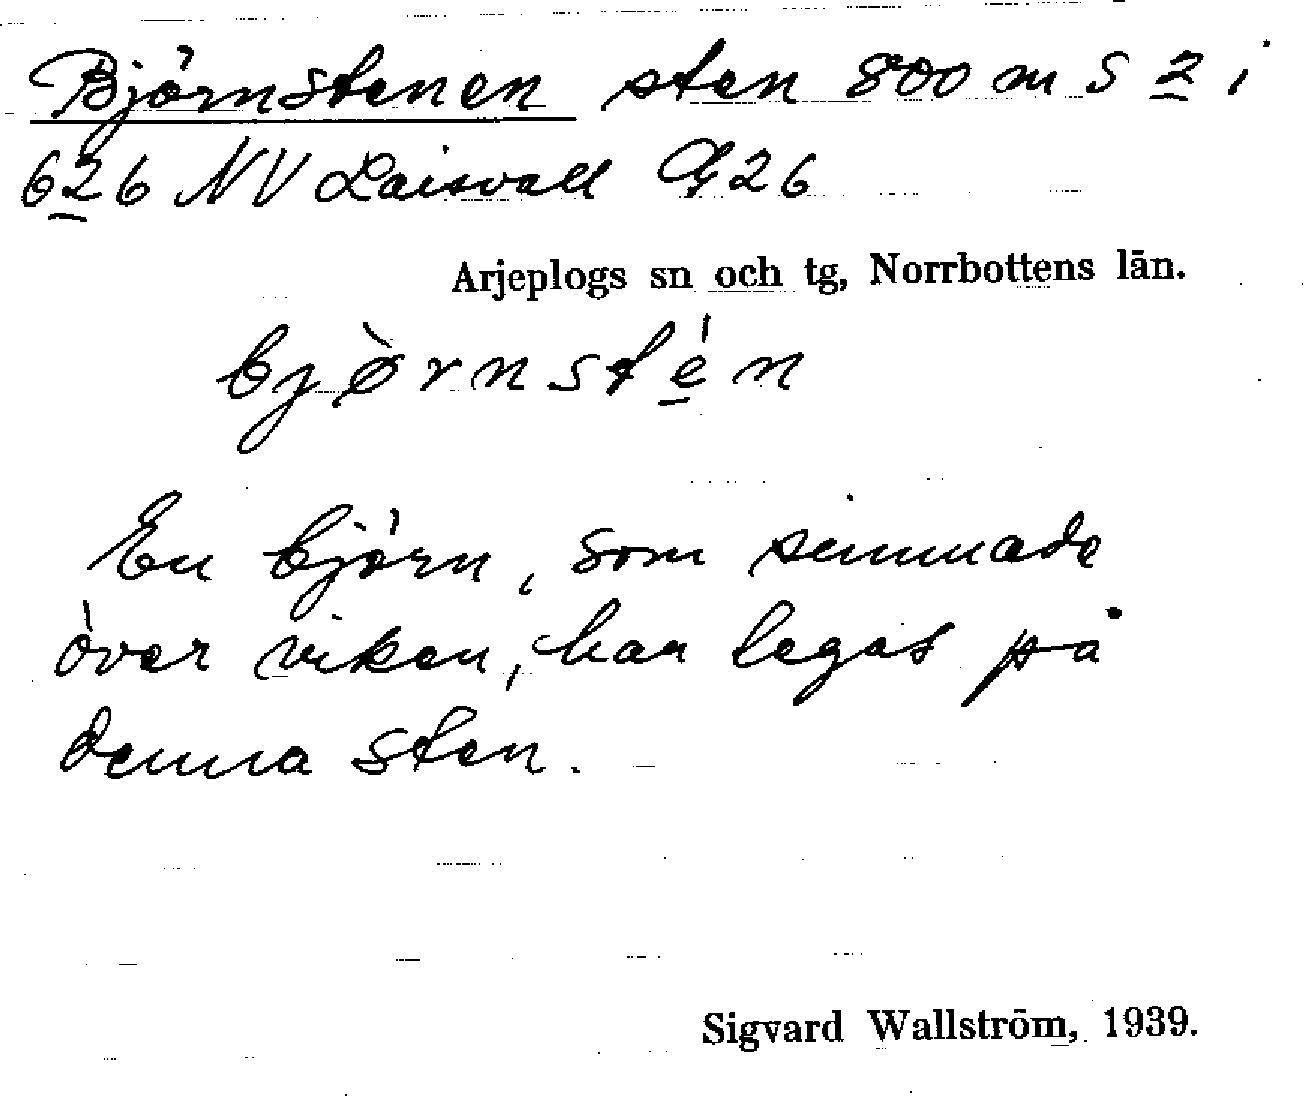 Björnstenen sten 800 m S 2 i
626 NV Laisvall 26
Arjeplogs sn och tg, Norrbottens län.
bjø̀rnstén
En björn, som simmade
över viken, har legat på
denna sten.
Sigvard Wallström, 1939.